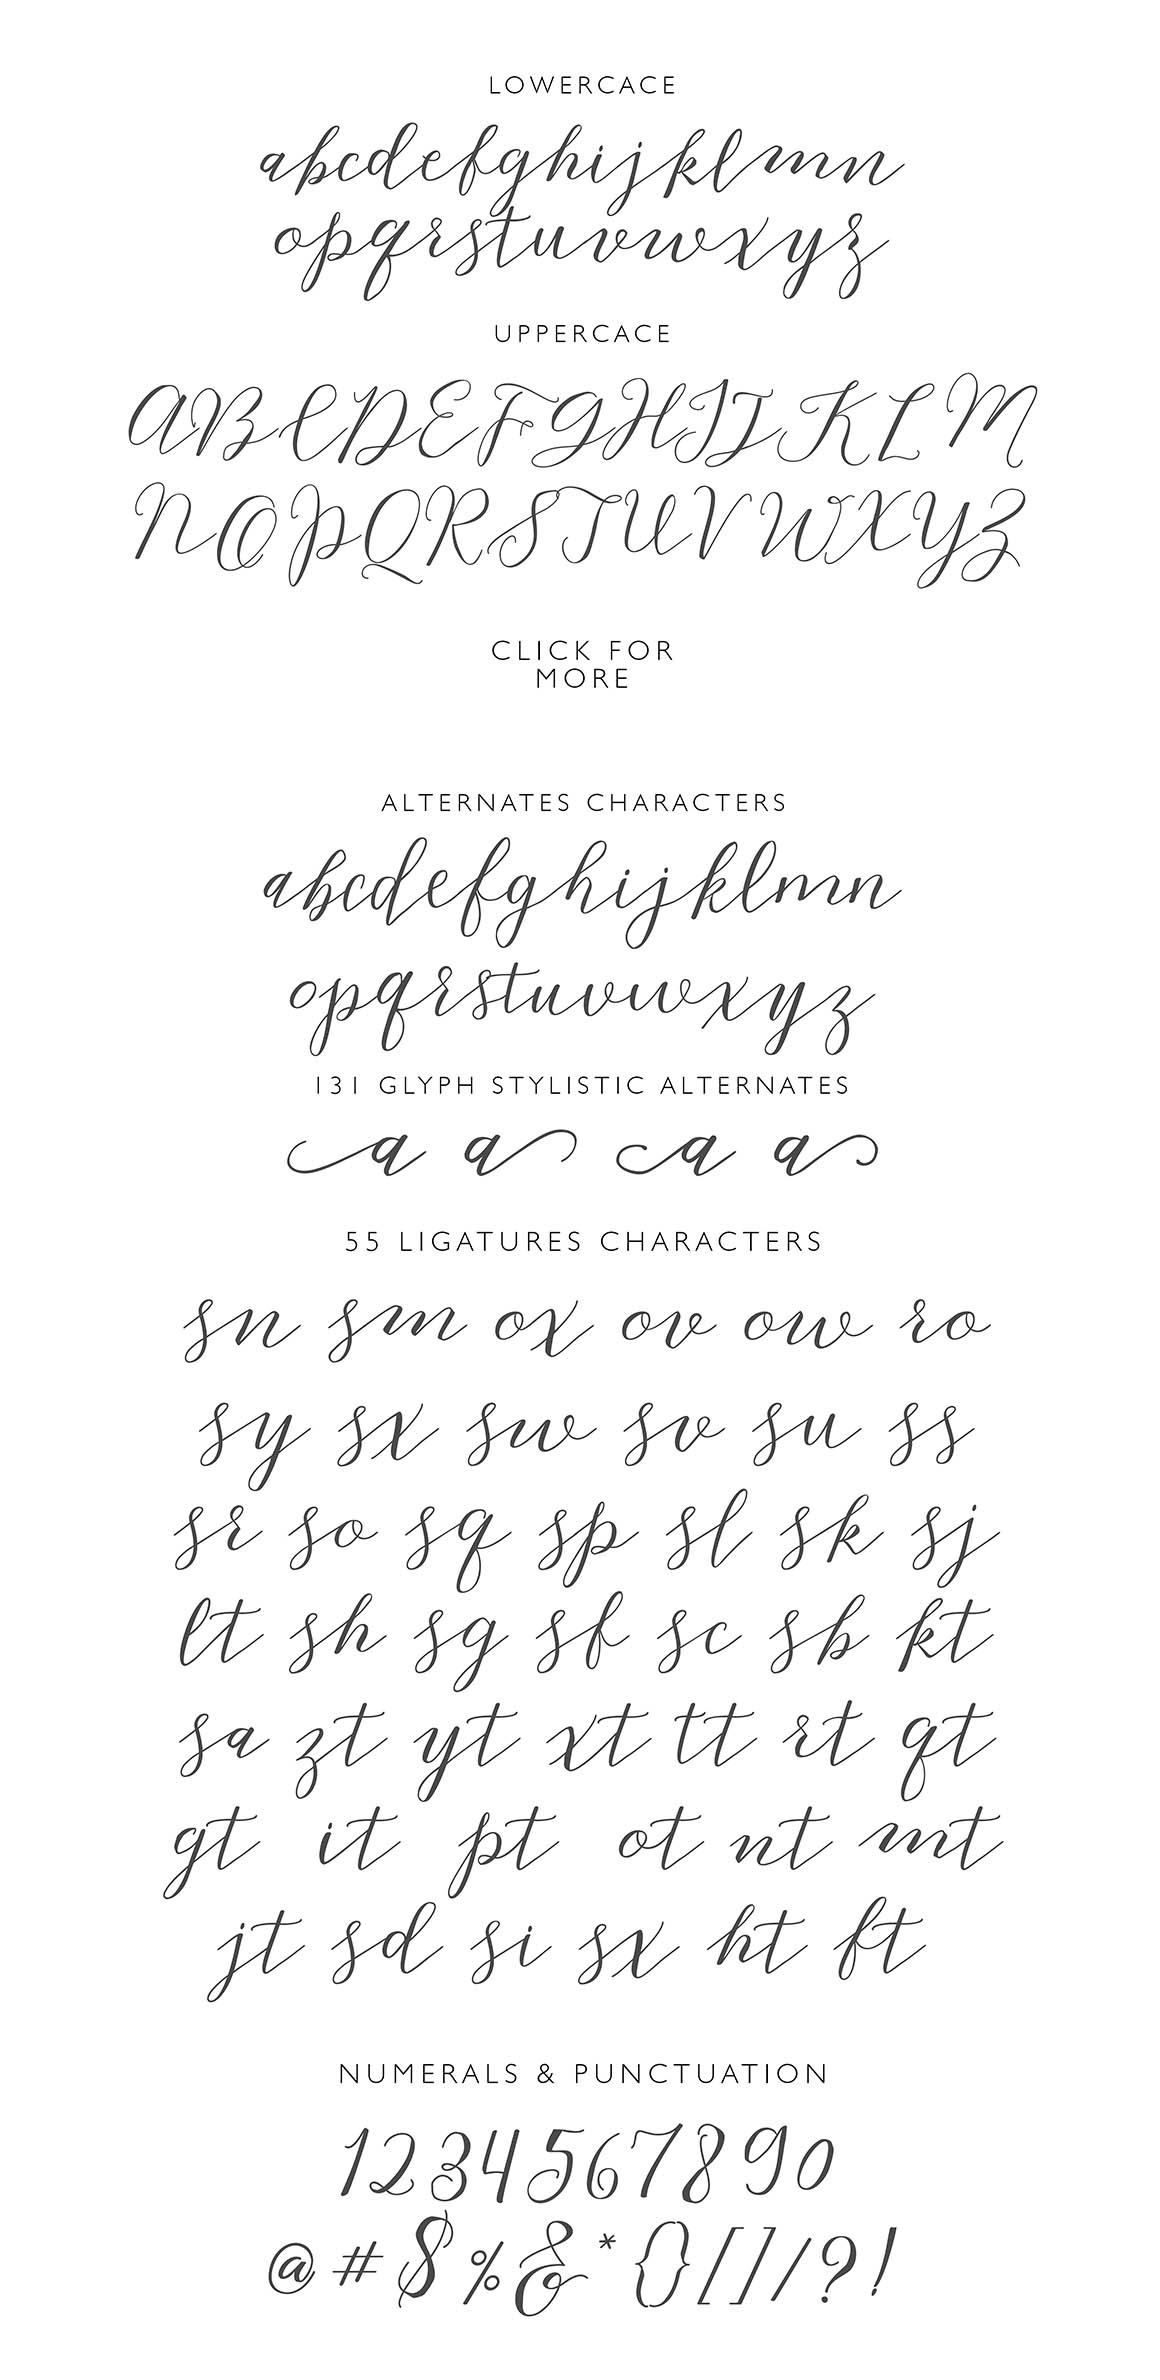 LOWERCACE
abcdefghijklmn
opqrstuvwxyz
UPPERCACE
ABCDEFGHIJKLM
NOPQRSTUVWXYZ
CLICK FOR
MORE
ALTERNATES CHARACTERS
abcdefghijklmn
opqrstuvwxyz
131 GLYPH STYLISTIC ALTERNATES
a a a a
55 LIGATURES CHARACTERS
sn sm ox ov ow ro
sy sx sw sv su ss
sr so sq sp sl sk sj
lt sh sg sf sc sb kt
sa zt yt xt tt rt qt
gt it pt ot nt mt
jt sd si sx ht ft
NUMERALS & PUNCTUATION
1234567890
@#$%&*{}[]/?!